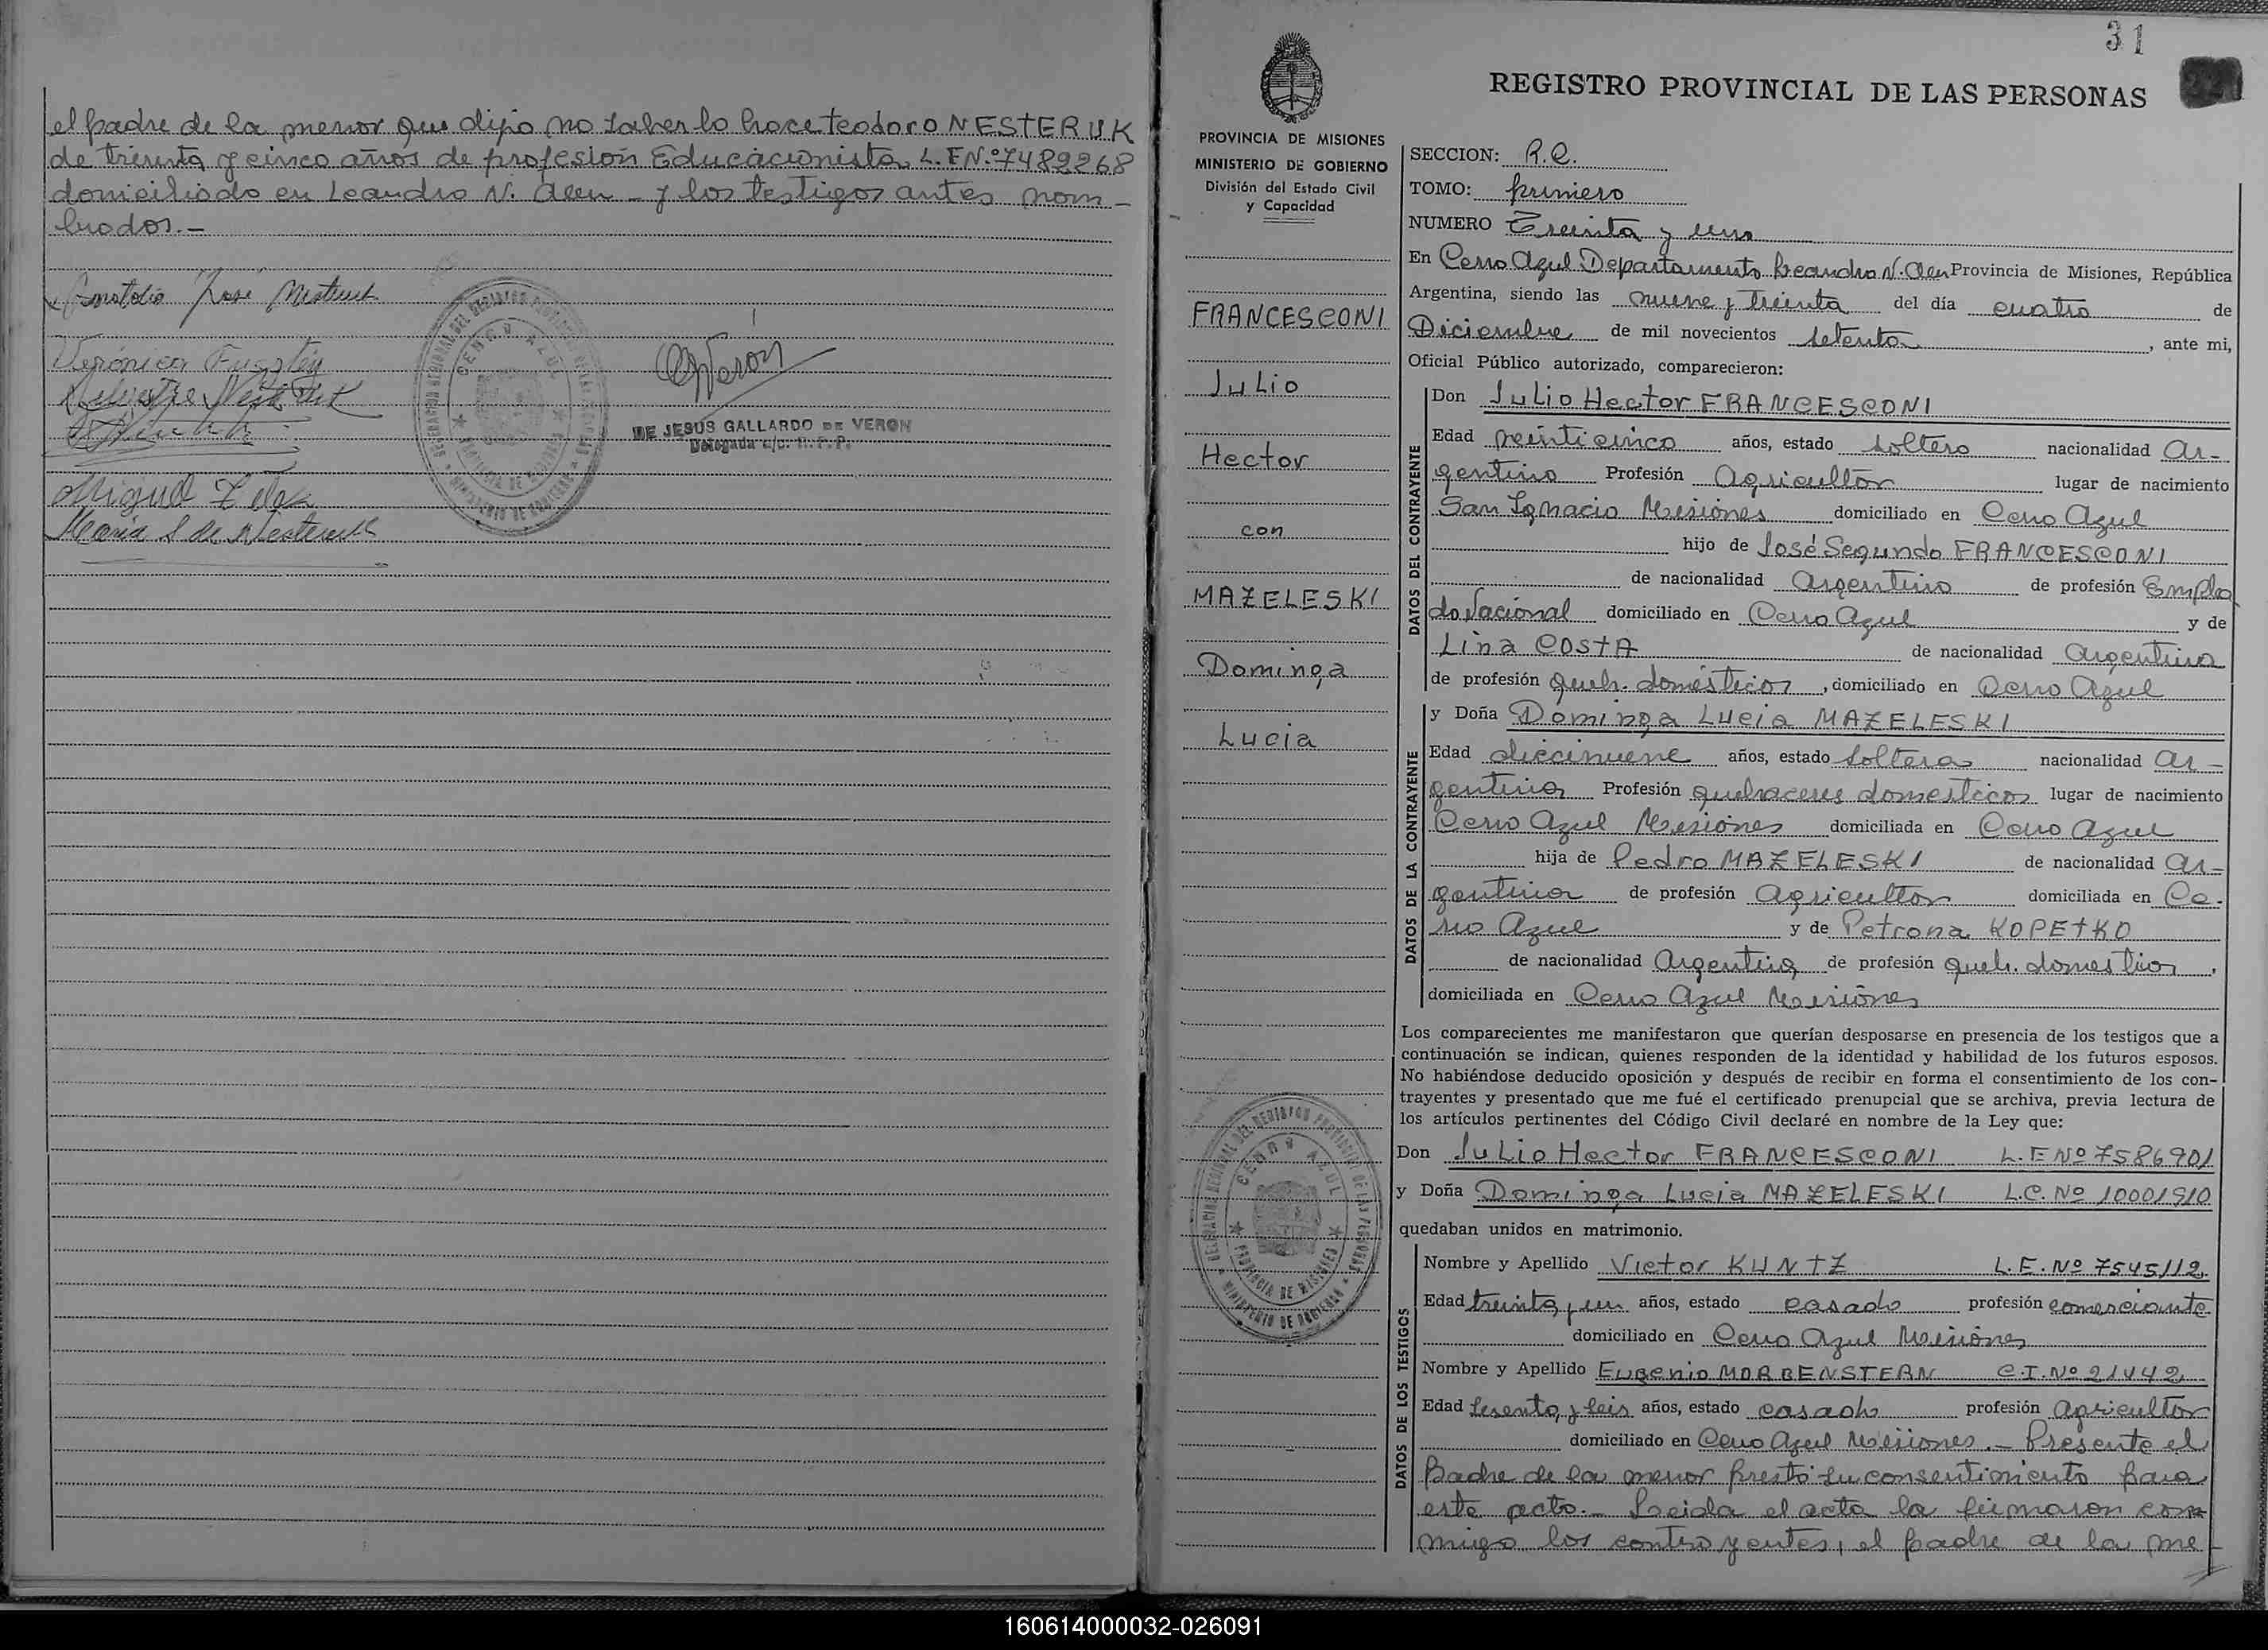 el padre de la menor que dijo no saber lo hace teodoro NESTERUK
de treinta y cinco años de profesión Educacionista L.E Nº 7482268
domiciliado en Leandro N. Alem - y los testigos antes nom-
brados.-
José
Verónica
Miguel
María S de Nesteruk
DE JESUS GALLARDO DE VERON
Delegada
CERRO AZUL
31
REGISTRO PROVINCIAL DE LAS PERSONAS
PROVINCIA DE MISIONES
MINISTERIO DE GOBIERNO
División del Estado Civil
y Capacidad
FRANCESCONI
Julio
Hector
con
MAZELESKI
Dominga
Lucia
SECCION: R.Q.
TOMO: primero
NUMERO Treinta y uno
En Cerro Azul Departamento Leandro N. Alem Provincia de Misiones, República
Argentina, siendo las nueve y treinta del día cuatro de
Diciembre de mil novecientos setenta, ante mi,
Oficial Público autorizado, comparecieron:
DATOS DEL CONTRAYENTE
Don Julio Hector FRANCESCONI
Edad veinticinco años, estado soltero nacionalidad Ar-
gentino Profesión Agricultor lugar de nacimiento
San Ignacio Misiones domiciliado en Cerro Azul
hijo de José Segundo FRANCESCONI
de nacionalidad Argentino de profesión Emplea
do Nacional domiciliado en Cerro Azul y de
Lina COSTA de nacionalidad Argentina
de profesión queh. domésticos, domiciliado en Cerro Azul
DATOS DE LA CONTRAYENTE
y Doña Dominga Lucia MAZELESKI
Edad diecinueve años, estado soltera nacionalidad Ar-
gentina Profesión quehaceres domesticos lugar de nacimiento
Cerro Azul Misiones domiciliada en Cerro Azul
hija de Pedro MAZELESKI de nacionalidad Ar-
gentina de profesión Agricultor domiciliada en Ce-
rro Azul y de Petrona KOPETKO
de nacionalidad Argentina de profesión queh. domesticos,
domiciliada en Cerro Azul Misiones
Los comparecientes me manifestaron que querían desposarse en presencia de los testigos que a
continuación se indican, quienes responden de la identidad y habilidad de los futuros esposos.
No habiéndose deducido oposición y después de recibir en forma el consentimiento de los con-
trayentes y presentado que me fué el certificado prenupcial que se archiva, previa lectura de
los artículos pertinentes del Código Civil declaré en nombre de la Ley que:
Don Julio Hector FRANCESCONI L.E Nº 7586901
y Doña Dominga Lucia MAZELESKI L.C. Nº 10001910
quedaban unidos en matrimonio.
DATOS DE LOS TESTIGOS
Nombre y Apellido Victor KUNTZ L.E. Nº 7545112
Edad treinta y un años, estado casado profesión comerciante
domiciliado en Cerro Azul Misiones
Nombre y Apellido Eugenio MORGENSTERN C.I. Nº 21442
Edad sesenta y seis años, estado casado profesión agricultor
domiciliado en Cerro Azul Misiones.- Presente el
Padre de la menor prestó su consentimiento para
este acto.- Leida el acta la firmaron con
migo los contrayentes, el padre de la me
CERRO AZUL
160614000032-026091